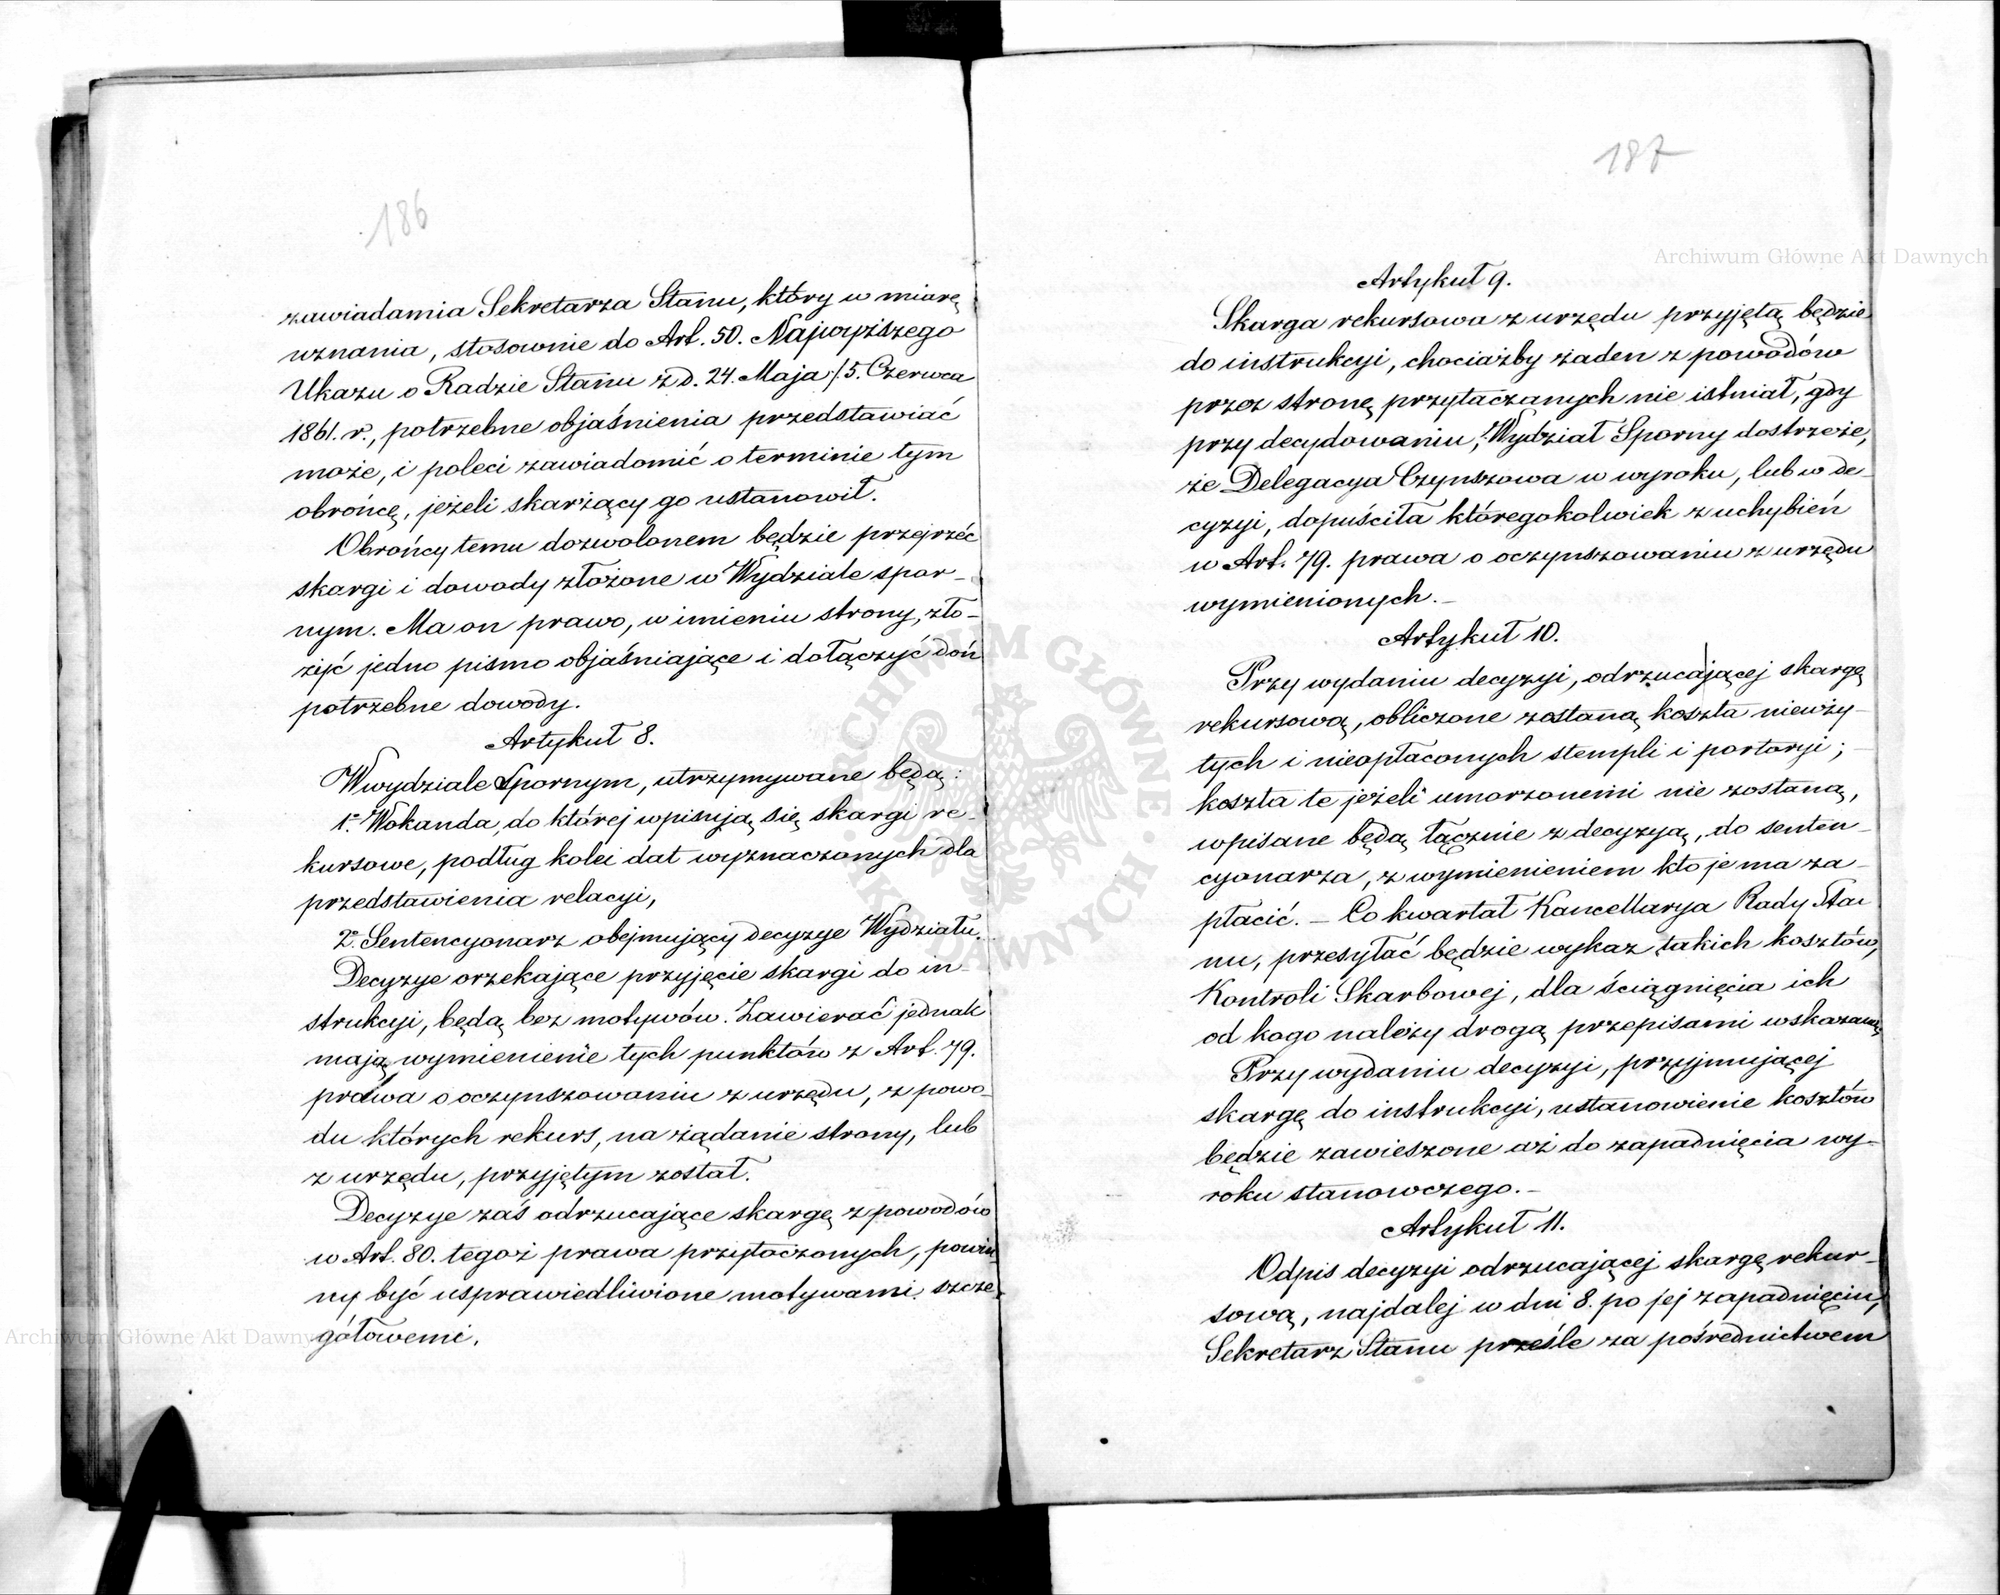 186
zawiadamia Sekretarza Stanu, który w miarę
uznania, stosownie do Art. 50. Najwyższego
Ukazu o Radzie Stanu z d. 24. Maja /5. Czerwca
1861. r., potrzebne objaśnienia przedstawiać
może, i poleci zawiadomić o terminie tym
obrońcę, jeżeli skarżący go ustanowił.
Obrońcy temu dozwolonem będzie przejrzéć
skargi i dowody złożone w Wydziale spor-
nym. Ma on prawo, w imieniu strony, zło-
żyć jedno pismo objaśniające i dołączyć doń
potrzebne dowody.
Artykuł 8.
W wydziale Spornym, utrzymywane będą:
1o. Wokanda, do której wpisują się skargi re-
kursowe, podług kolei dat wyznaczonych dla
przedstawienia relacyi,
2o. Sentencyonarz obejmujący decyzye Wydziału.
Decyzye orzekające przyjęcie skargi do in-
strukcyi, będą bez motywów. Zawierać jednak
mają wymienienie tych punktów z Art. 79.
prawa o oczynszowaniu z urzędu, z powo-
du których rekurs, na żądanie strony, lub
z urzędu, przyjętym został.
Decyzye zaś odrzucające skargę z powodów
w Art. 80. tegoż prawa przytoczonych, powin
ny być usprawiedliwione motywami szcze-
gółowemi.
187
Artykuł 9.
Skarga rekursowa z urzędu przyjętą będzie
do instrukcyi, chociażby żaden z powodów
przez stronę przytaczanych nie istniał, gdy
przy decydowaniu, Wydział Sporny dostrzeże,
że Delegacya Czynszowa w wyroku, lub w de-
cyzyi, dopuściła któregokolwiek z uchybień
w Art. 79. prawa o oczynszowaniu z urzędu
wymienionych.-
Artykuł 10.
Przy wydaniu decyzyi, odrzucającej skargę
rekursową, obliczone zostaną koszta nieuży-
tych i nieopłaconych stempli i portoryi;-
koszta te jeżeli umorzonemi nie zostaną,
wpisane będą łącznie z decyzyą, do senten-
cyonarza, z wymienieniem kto je ma za-
płacić. - Co kwartał Kancellarya Rady Sta
nu, przesyłać będzie wykaz takich kosztów,
Kontroli Skarbowej, dla ściągnięcia ich
od kogo należy drogą przepisami wskazaną
Przy wydaniu decyzyi, przyjmującej
skargę do instrukcyi, ustanowienie kosztów
będzie zawieszone aż do zapadnięcia wy-
roku stanowczego.-
Artykuł 11.
Odpis decyzyi odrzucającej skargę rekur-
sową, najdalej w dni 8. po jej zapadnięciu,
Sekretarz Stanu prześle za pośrednictwem
Archiwum Główne Akt Dawnych
Archiwum Główne Akt Dawnych
ARCHIWUM GŁÓWNE · AKT DAWNYCH ·